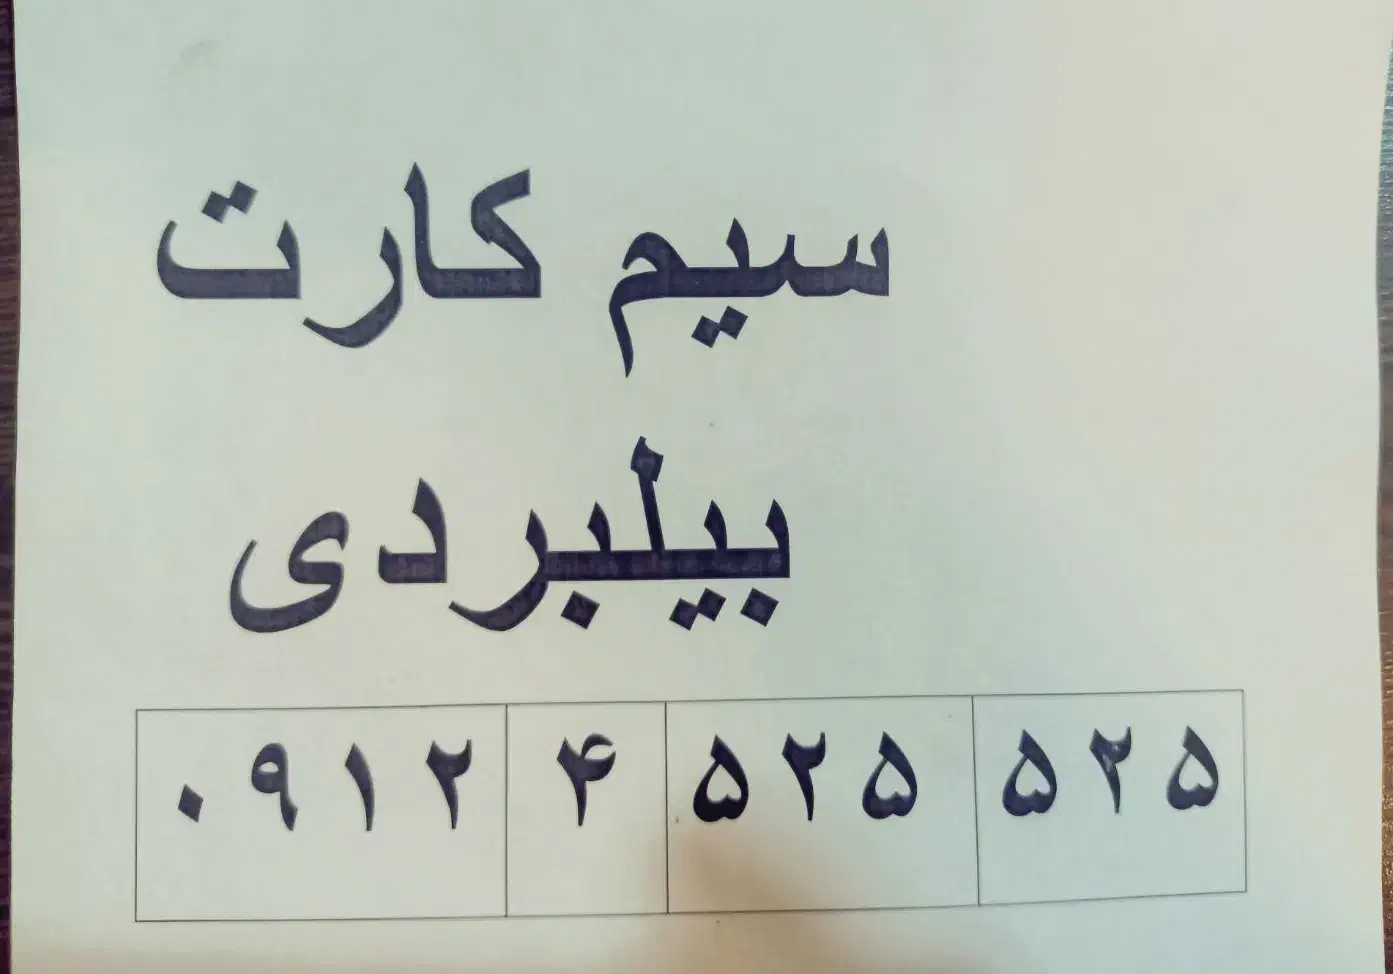 سیم کارت
بیلبردی
۰۹۱۲ ۴ ۵۲۵ ۵۲۵